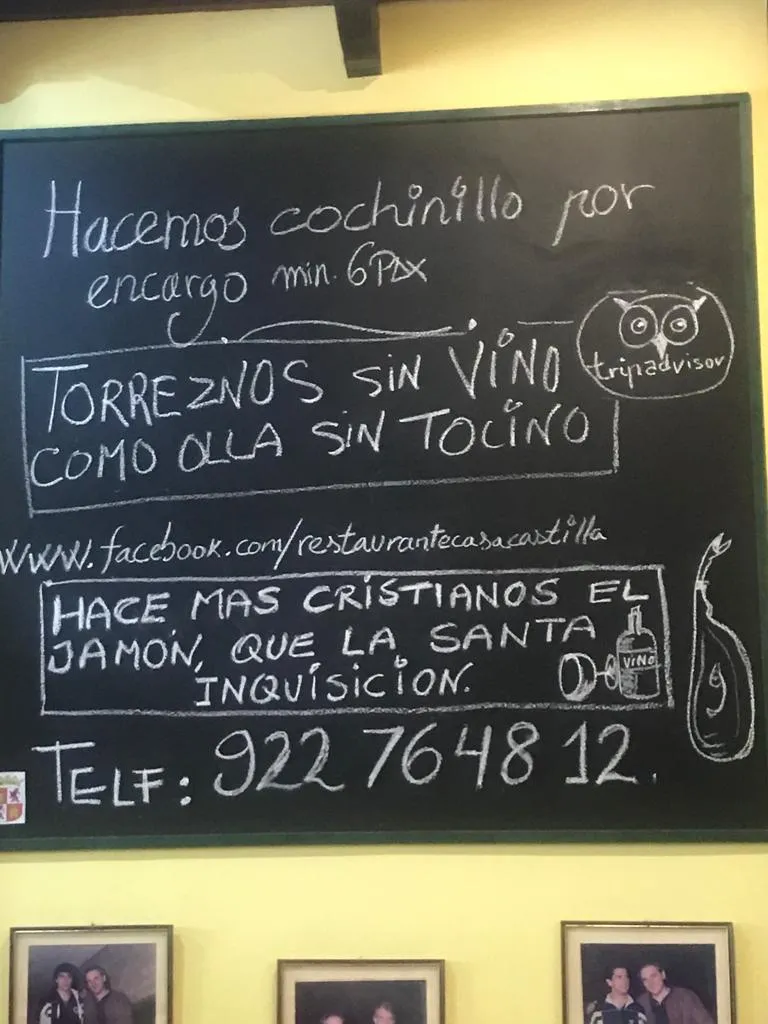 Hacemos cochinillo por
encargo min. 6 PAX
TORREZNOS SIN VINO
COMO OLLA SIN TOCINO
tripadvisor
www.facebook.com/restaurantecasacastilla
HACE MAS CRISTIANOS EL
JAMÓN, QUE LA SANTA
INQUISICION.
VINO
TELF: 922 76 48 12.